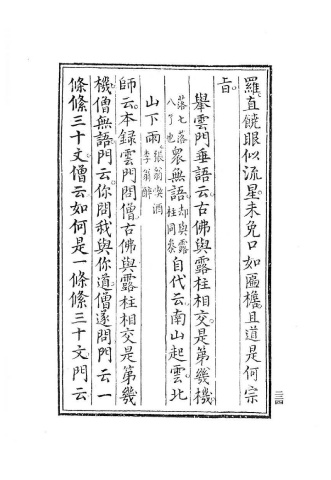 羅直饒眼似流星。未免口如匾檐。且道是何宗
旨。
舉雲門垂語云。古佛與露柱相交是第幾機
落七落八了也
眾無語。
却與露柱同參
自代云。南山起雲。北
山下雨。
張翁喫酒李翁醉
師云。本録雲門問僧。古佛與露柱相交是第幾
機。僧無語。門云。你問我與你道。僧遂問。門云。一
條絛三十文。僧云。如何是一條絛三十文。門云
二三四